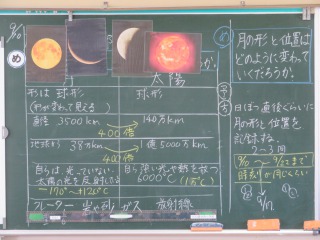 9/10
め
月
太陽
形は 球形
球形
(形が変わって見える)
直径 3500km
140万km
400倍
地球から 38万km
1億5000万km
400倍
自らは光っていない
太陽の光を反射した
-170°～+120°C
自ら強い光や熱を放つ
6000°C
クレーター 岩や砂
ガス
放射線
め
月の形と位置は
どのように変わって
いくだろうか。
日ぼつ直後ぐらいに
月の形と位置を
記録する。
2～3回
時刻が同じくらい